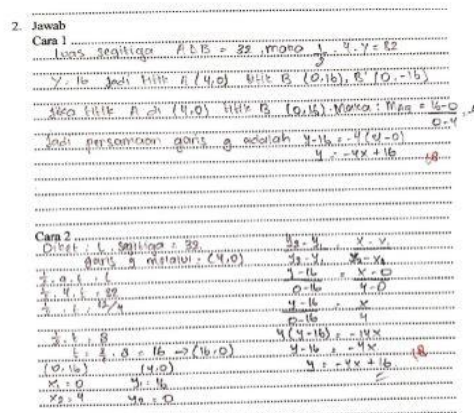 2. Jawab
Cara 1
Luas segitiga AOB = 32, maka 1/2 . 4 . y = 32
y = 16 jadi titik A (4,0) titik B (0,16), B' (0,-16)
Jika titik A di (4,0) titik B (0,16). Maka : mAB = 16-0 / 0-4
Jadi persamaan garis g adalah y-16 = -4(x-0)
y = -4x + 16
8
Cara 2
Diket : L. Segitiga = 32.
garis g melalui = (4,0)
1/2 . a . t = L
1/2 . 4 . t = 32
1/2 . t = 32/4
1/2 . t = 8
t = 2/1 . 8 = 16 → (16,0)
(0,16) (4,0)
x₁ = 0 y₁ = 16
x₂ = 4 y₂ = 0
y - y₁ / y₂ - y₁ = x - x₁ / x₂ - x₁
y - 16 / 0 - 16 = x - 0 / 4 - 0
y - 16 / 0 - 16 = x / 4
4(y-16) = -14x
y - 16 = -4x
y = -4x + 16
8